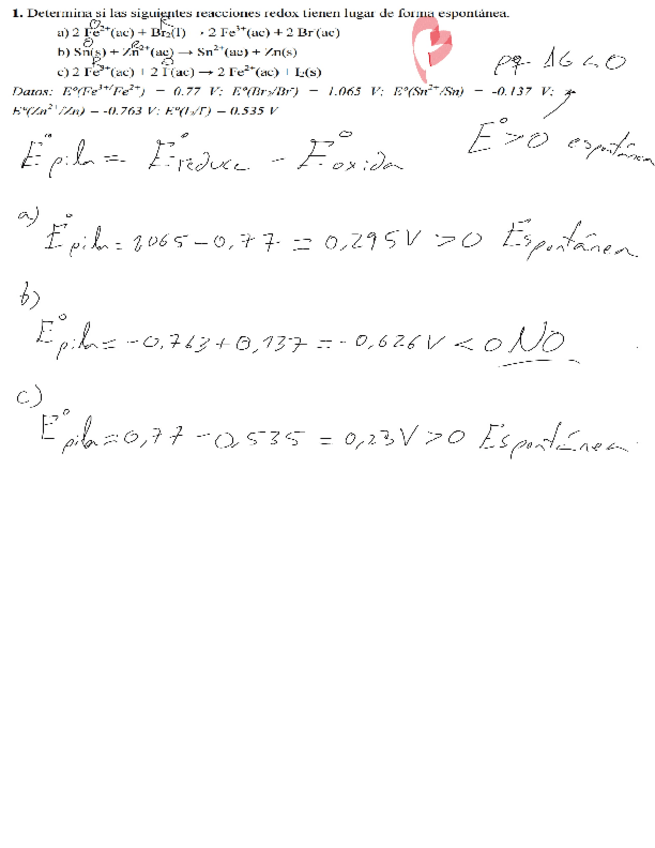 1. Determina si las siguientes reacciones redox tienen lugar de forma espontánea.
a) 2 Fe²⁺(ac) + Br₂(l) → 2 Fe³⁺(ac) + 2 Br⁻(ac)
b) Sn(s) + Zn²⁺(ac) → Sn²⁺(ac) + Zn(s)
c) 2 Fe³⁺(ac) + 2 I⁻(ac) → 2 Fe²⁺(ac) + I₂(s)
Datos: Eº(Fe³⁺/Fe²⁺) = 0.77 V; Eº(Br₂/Br⁻) = 1.065 V; Eº(Sn²⁺/Sn) = -0.137 V;
Eº(Zn²⁺/Zn) = -0.763 V; Eº(I₂/I⁻) = 0.535 V
ΔG<0
E°>0 espontánea
E°pila = E°reduce - E°oxida
a)
E°pila = 1,065 - 0,77 = 0,295V > 0 Espontánea
b)
E°pila = -0,763 + 0,137 = -0,626V < 0 NO
c)
E°pila = 0,77 - 0,535 = 0,23V > 0 Espontánea